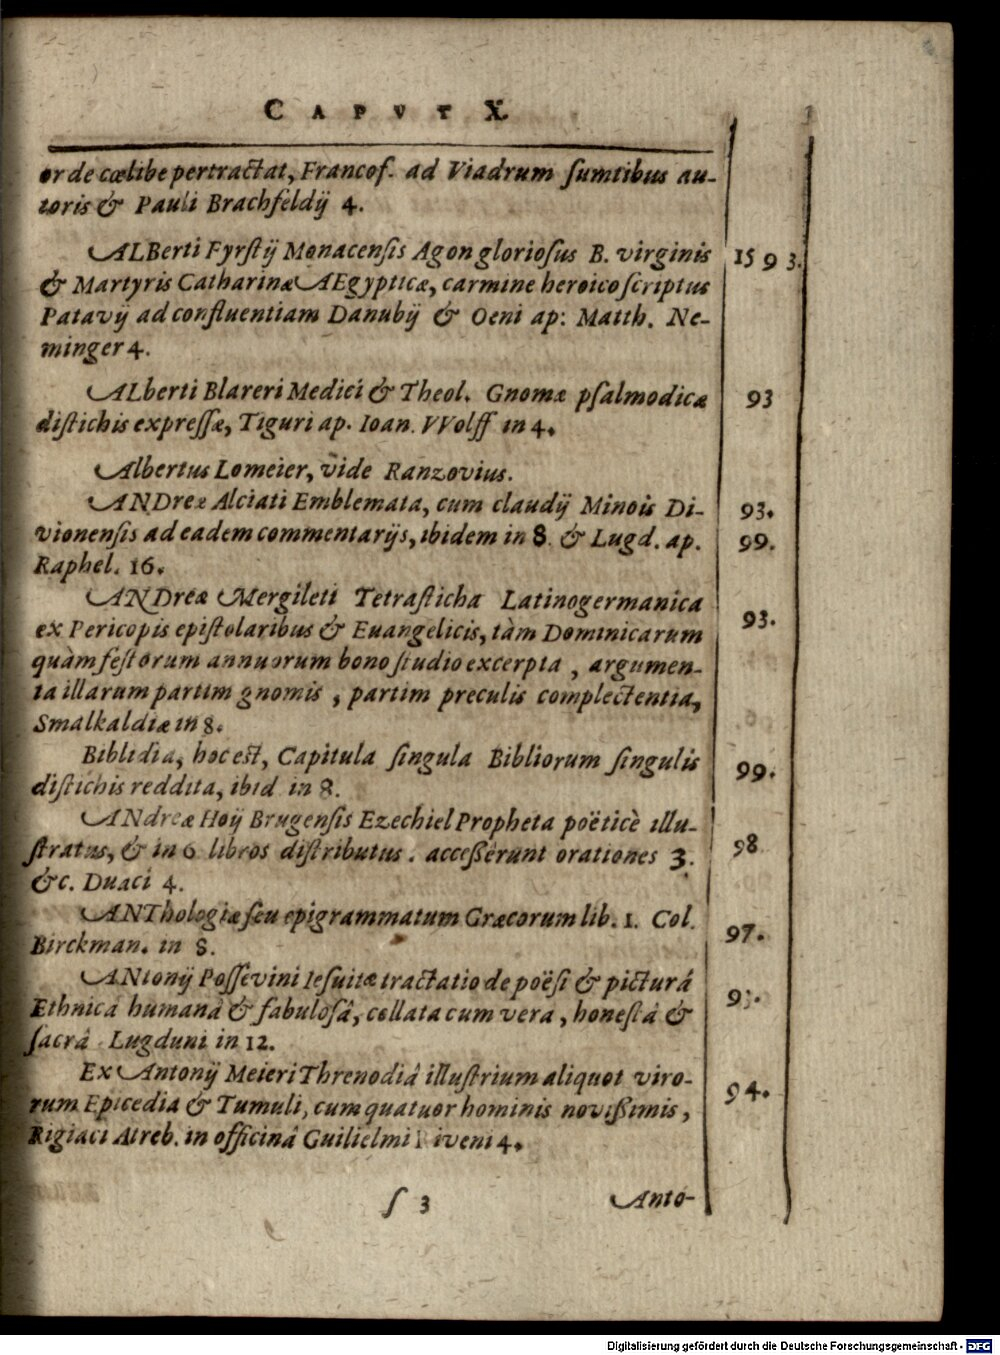 CAPVT X.
or de cœlibe pertractat, Francof. ad Viadrum ſumtibus au-
toris & Pauli Brachfeldij 4.
ALBerti Fyrſtij Monacenſis Agon glorioſus B. virginis 1593.
& Martyris Catharinæ AEgypticæ, carmine heroico ſcriptus
Patavij ad confluentiam Danubij & Oeni ap: Matth. Ne-
minger 4.
ALberti Blareri Medici & Theol. Gnomæ pſalmodicæ 93
diſtichis expreſſæ, Tiguri ap. Ioan. VVolff in 4.
Albertus Lomeier, vide Ranzovius.
ANDreæ Alciati Emblemata, cum claudij Minois Di- 93.
vionenſis ad eadem commentarijs, ibidem in 8. & Lugd. ap. 99.
Raphel. 16.
ANDreæ Mergileti Tetraſticha Latinogermanica 93.
ex Pericopis epiſtolaribus & Euangelicis, tàm Dominicarum
quàm feſtorum annuorum bono ſtudio excerpta, argumen-
ta illarum partim gnomis, partim preculis complectentia,
Smalkaldiæ in 8.
Biblidia, hoc est, Capitula ſingula Bibliorum ſingulis 99.
diſtichis reddita, ibid. in 8.
ANdreæ Hoij Brugenſis Ezechiel Propheta poëticè illu-
ſtratus, & in 6 libros diſtributus. acceßêrunt orationes 3. 98
&c. Duaci 4.
ANThologiæ ſeu epigrammatum Græcorum lib. 1. Col. 97.
Birckman. in 8.
ANtonij Poſſevini Ieſuitæ tractatio de poëſi & picturâ
Ethnica humanâ & fabuloſâ, collata cum vera, honeſtâ &
ſacrâ Lugduni in 12.
Ex Antonij Meieri Threnodiâ illuſtrium aliquot viro- 94.
rum Epicedia & Tumuli, cum quatuor hominis novißimis,
Rigiaci Atreb. in officinâ Guilielmi iveni 4.
ſ 3 Anto-
Digitalisierung gefördert durch die Deutsche Forschungsgemeinschaft - DFG